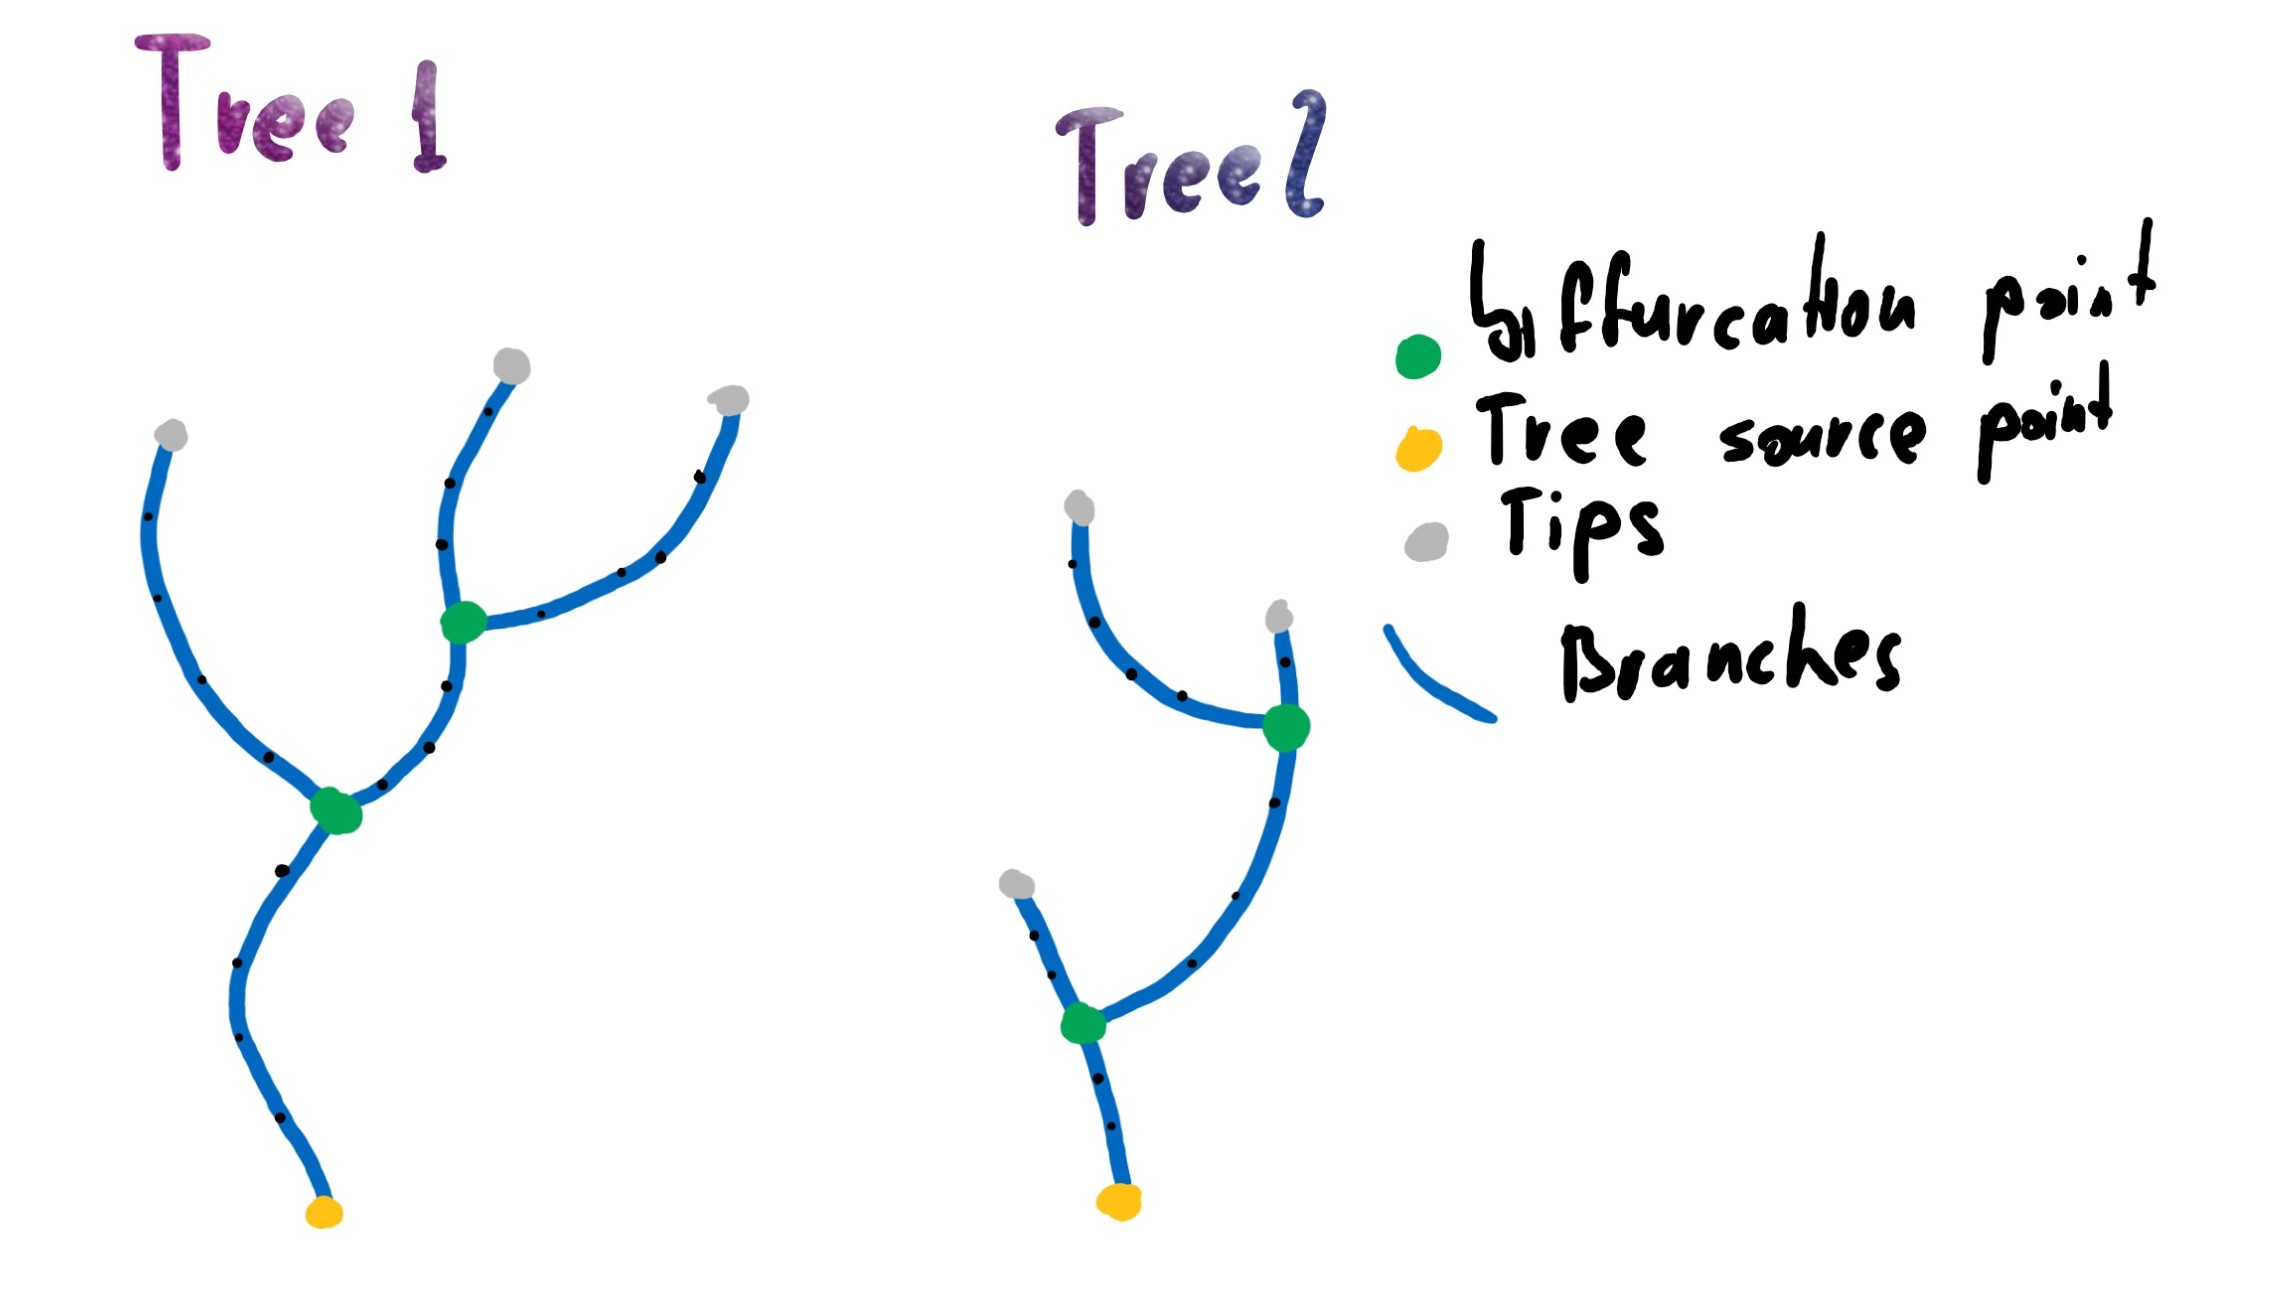 Tree 1
Tree 2
biffurcation point
Tree source point
Tips
Branches